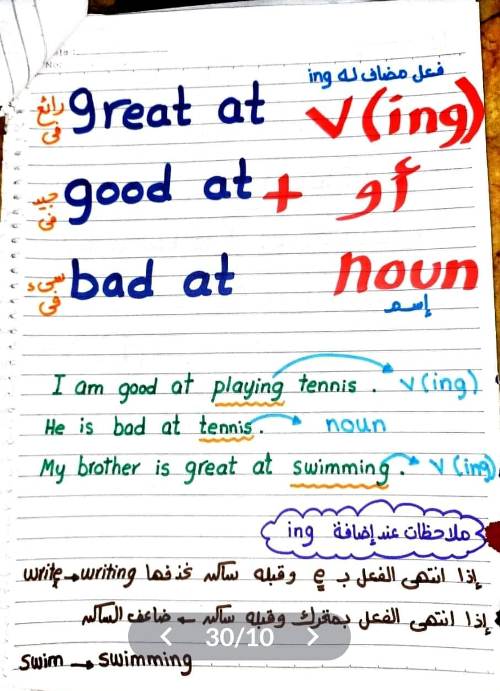 فعل مضاف له ing
great at رائع في
v(ing)
good at جيد في
+ أو
bad at سيء في
noun
إسم
I am good at playing tennis . v(ing)
He is bad at tennis. noun
My brother is great at swimming. v(ing)
ملاحظات عند إضافة ing
إذا انتهى الفعل بـ e وقبله ساكن نحذفها write → writing
إذا انتهى الفعل بمتحرك وقبله ساكن → ضاعف الساكن
30/10
swim → swimming